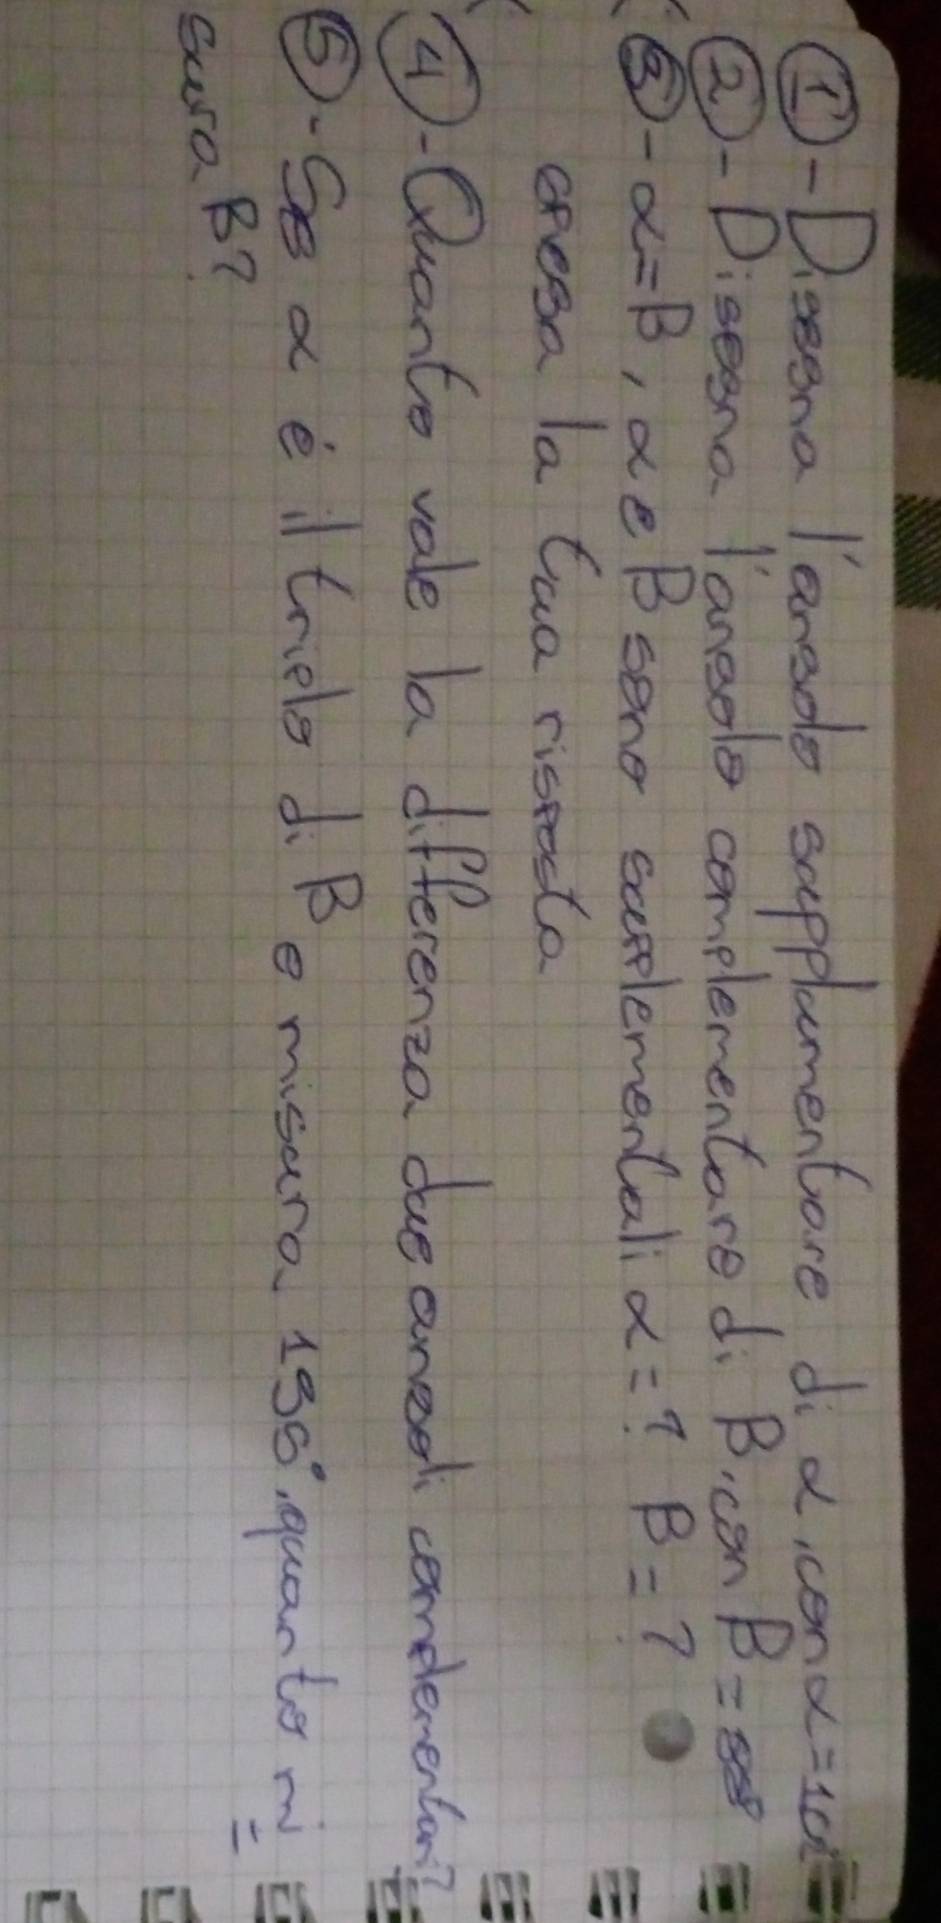 ①-Disegna l'angolo supplementare di α, con α=
②-Disegna l'angolo complementare di B, con B=
③-α=B, α e B sono supplementali α=? B=?
spega la tua risposta
④-Quanto vale la differenza due angoli complementari?
⑤-Se α è il triplo di B e misura, quanto mi
sura B?